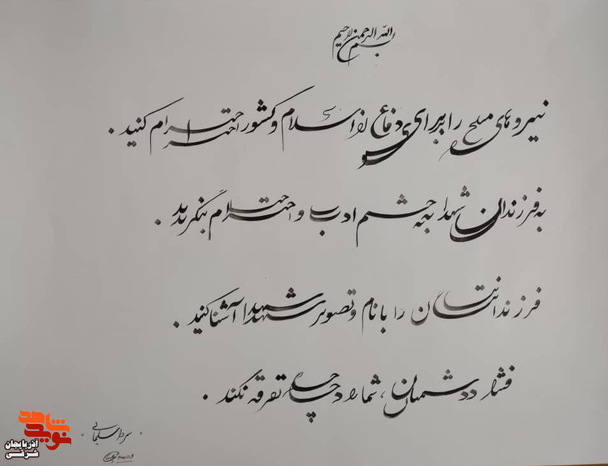 بسم الله الرحمن الرحیم
نیروهای مسلح را برای دفاع از اسلام و کشور احترام کنید.
به فرزندان شهدا به چشم ادب و احترام بنگرید.
فرزندانتان را با نام و تصویر شهدا آشنا کنید.
فشار دشمنان، شما را دچار تفرقه نکند.
سردار سلیمانی
نوید شاهد
آذربایجان
شرقی